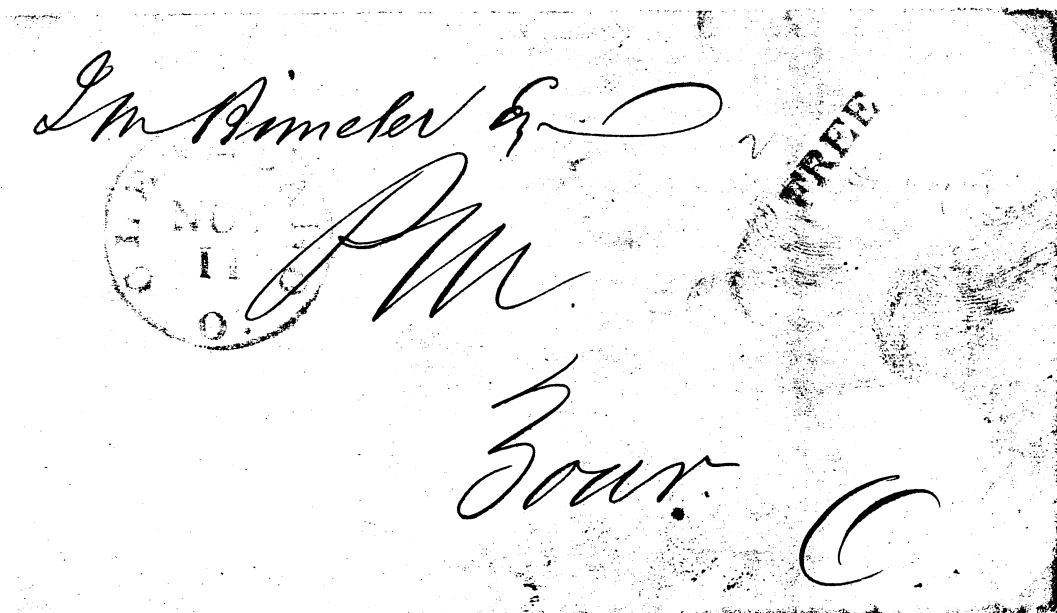 J M Bimeler Esq
FREE
2
NOV
11
O.
P M.
Zoar.
O.